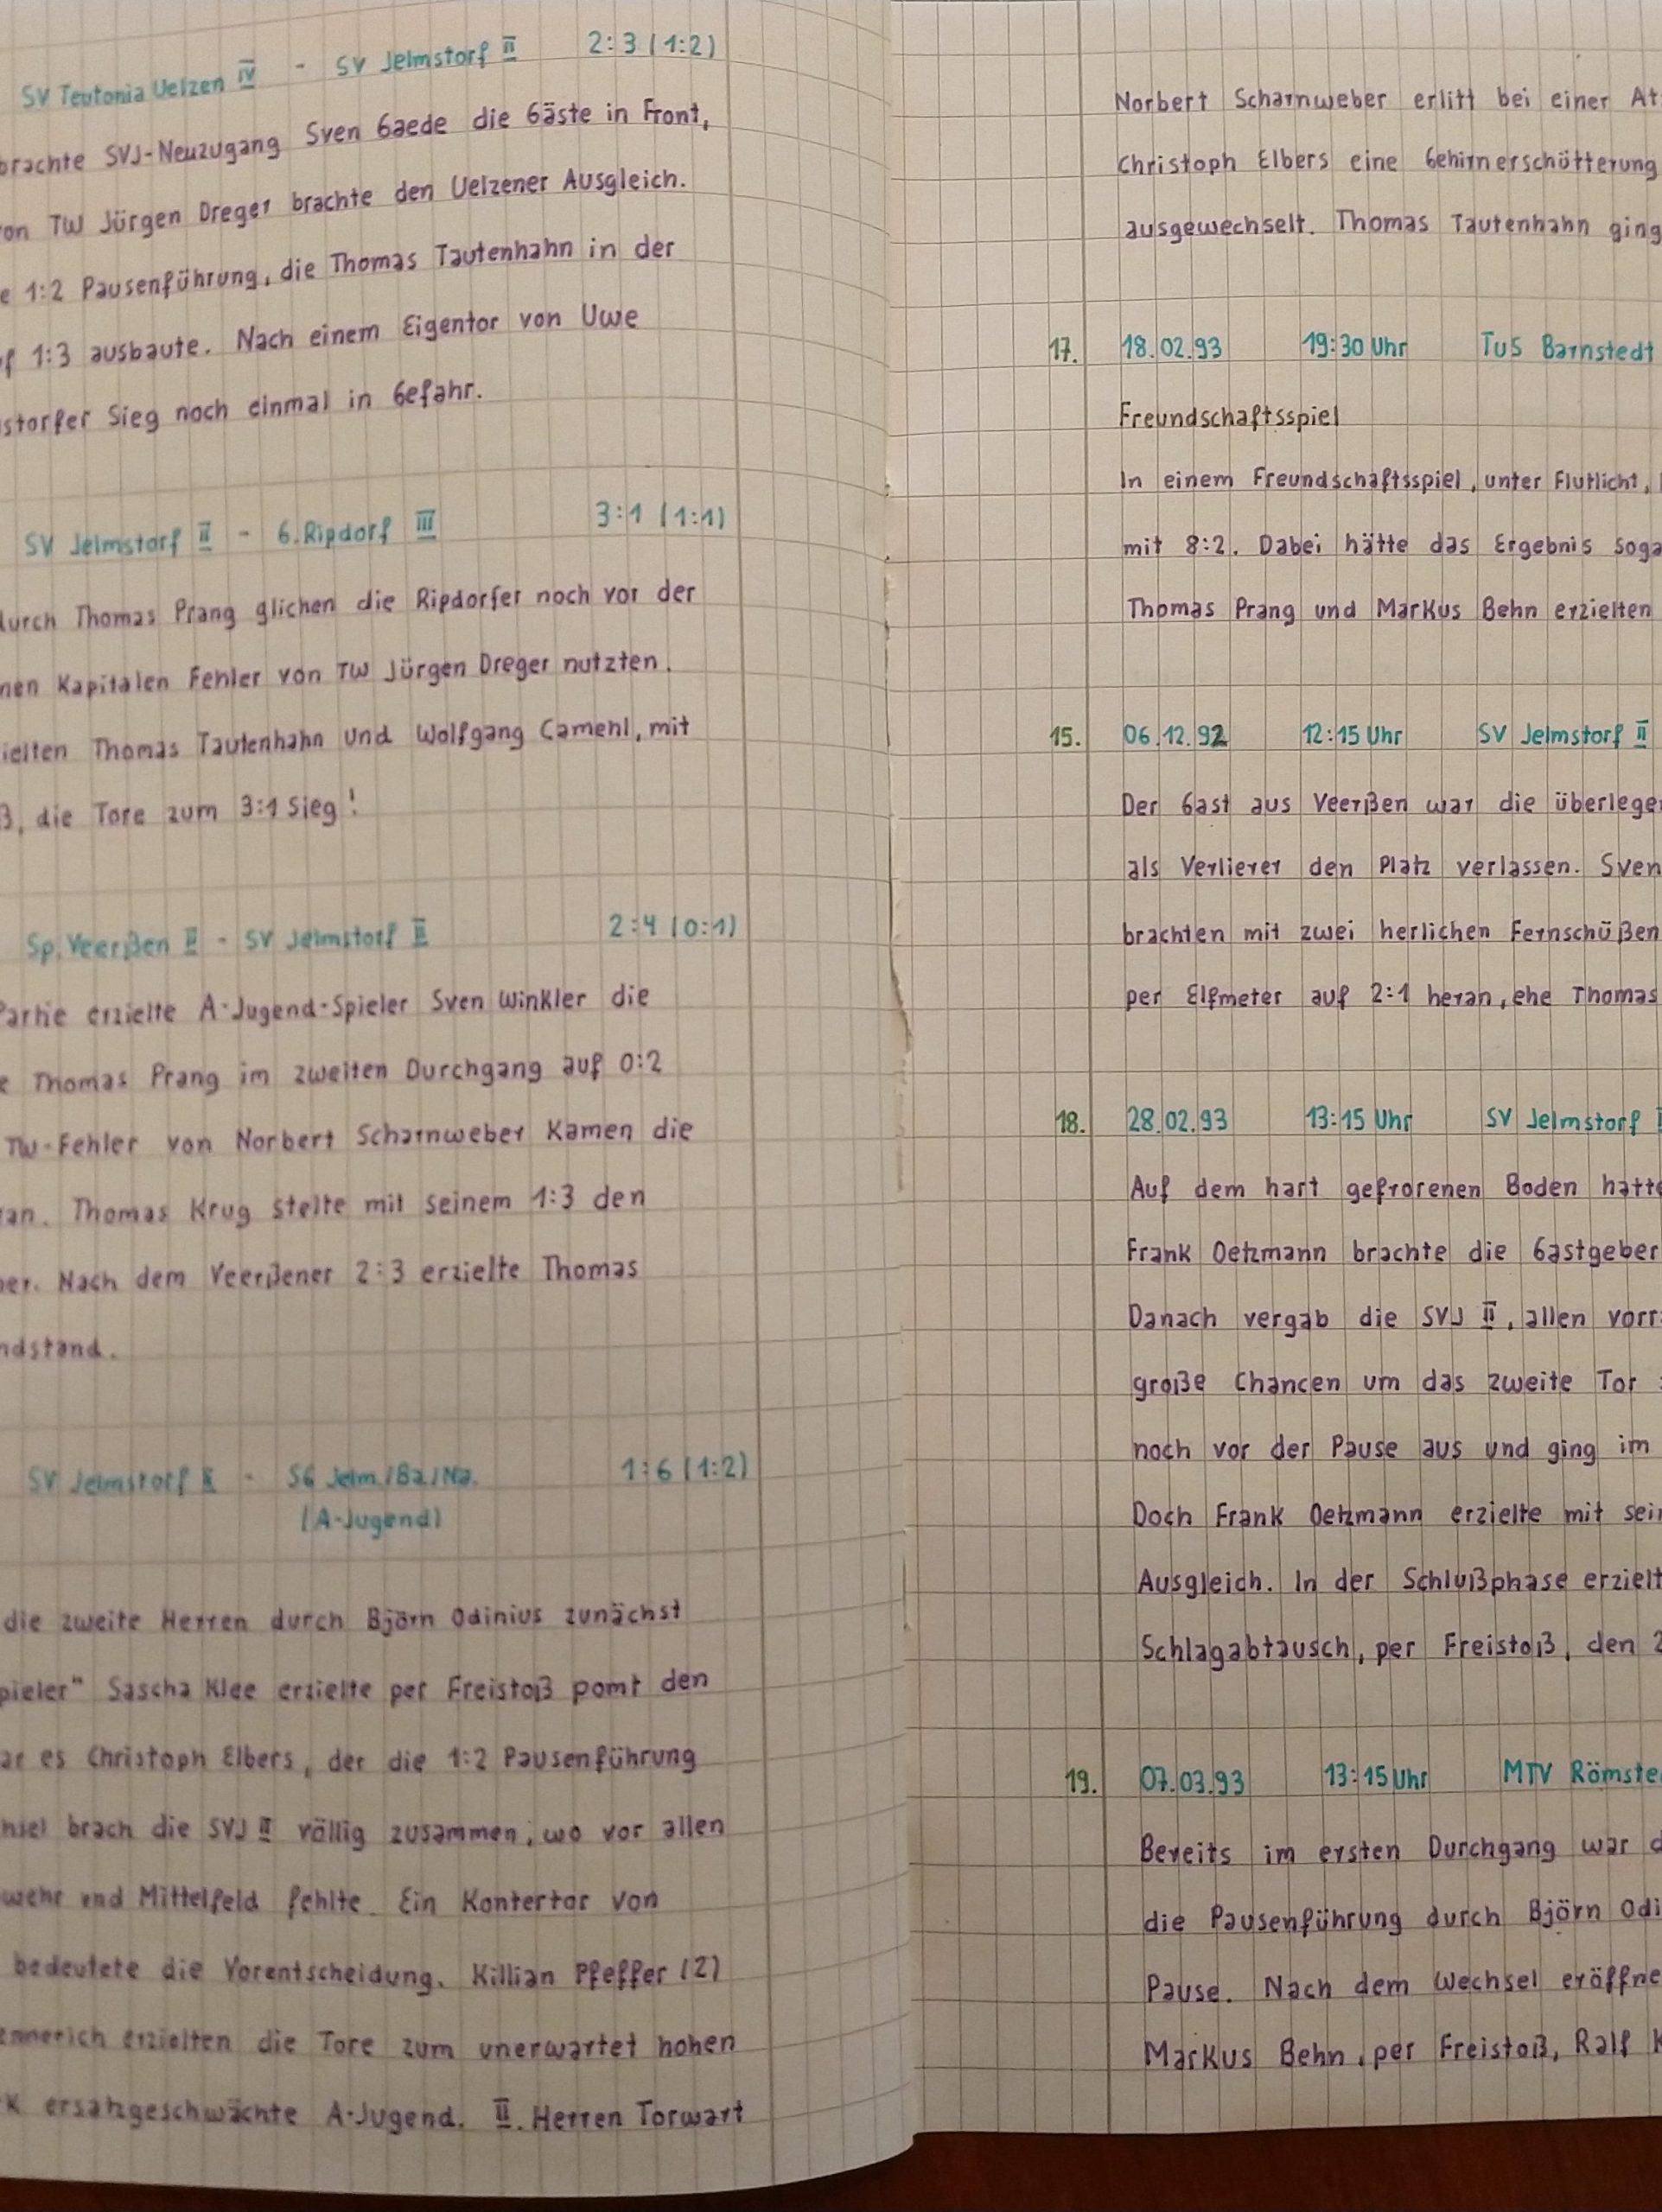 SV Teutonia Uelzen IV - SV Jelmstorf II 2:3 (1:2)
brachte SVJ-Neuzugang Sven Gaede die Gäste in Front,
von TW Jürgen Dreger brachte den Uelzener Ausgleich.
e 1:2 Pausenführung, die Thomas Tautenhahn in der
f 1:3 ausbaute. Nach einem Eigentor von Uwe
storfer Sieg noch einmal in Gefahr.
SV Jelmstorf II - G. Ripdorf III 3:1 (1:1)
durch Thomas Prang glichen die Ripdorfer noch vor der
nen Kapitalen Fehler von TW Jürgen Dreger nutzten.
ielten Thomas Tautenhahn und Wolfgang Camehl, mit
ß, die Tore zum 3:1 Sieg!
Sp. Veerßen II - SV Jelmstorf II 2:4 (0:1)
Partie erzielte A-Jugend-Spieler Sven Winkler die
e Thomas Prang im zweiten Durchgang auf 0:2
TW-Fehler von Norbert Scharnweber Kamen die
ran. Thomas Krug stelte mit seinem 1:3 den
her. Nach dem Veerßener 2:3 erzielte Thomas
ndstand.
SV Jelmstorf II - SG Jelm./Ba./Na. 1:6 (1:2)
(A-Jugend)
die zweite Herren durch Björn Odinius zunächst
pieler" Sascha Klee erzielte per Freistoß pomt den
ar es Christoph Elbers, der die 1:2 Pausenführung
hsel brach die SVJ II völlig zusammen, wo vor allen
wehr und Mittelfeld fehlte. Ein Kontertor von
bedeutete die Vorentscheidung. Killian Pfeffer (2)
ennerich erzielten die Tore zum unerwartet hohen
K ersatzgeschwächte A-Jugend. II. Herren Torwart
Norbert Scharnweber erlitt bei einer At
Christoph Elbers eine Gehirnerschütterung
ausgewechselt. Thomas Tautenhahn ging
17. 18.02.93 19:30 Uhr TuS Barnstedt
Freundschaftsspiel
In einem Freundschaftsspiel, unter Flutlicht,
mit 8:2. Dabei hätte das Ergebnis soga
Thomas Prang und Markus Behn erzielten
15. 06.12.92 12:15 Uhr SV Jelmstorf II
Der Gast aus Veerßen war die überlege
als Verlierer den Platz verlassen. Sven
brachten mit zwei herlichen Fernschüßen
per Elfmeter auf 2:1 heran, ehe Thomas
18. 28.02.93 13:15 Uhr SV Jelmstorf I
Auf dem hart gefrorenen Boden hatte
Frank Oetzmann brachte die Gastgeber
Danach vergab die SVJ II, allen vorr
große Chancen um das zweite Tor
noch vor der Pause aus und ging im
Doch Frank Oetzmann erzielte mit sein
Ausgleich. In der Schlußphase erzielt
Schlagabtausch, per Freistoß, den 2
19. 07.03.93 13:15 Uhr MTV Römste
Bereits im ersten Durchgang war d
die Pausenführung durch Björn Odi
Pause. Nach dem Wechsel eröffne
Markus Behn, per Freistoß, Ralf K